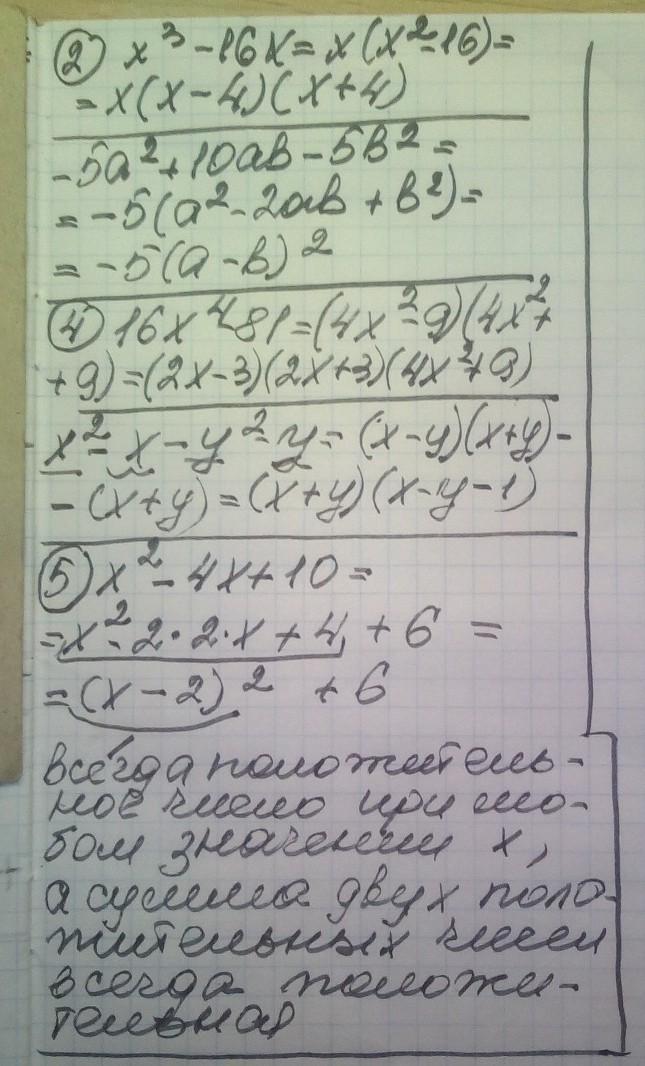 ② x³ - 16x = x(x² - 16) =
= x(x - 4)(x + 4)
-5a² + 10ab - 5b² =
= -5(a² - 2ab + b²) =
= -5(a - b)²
④ 16x⁴ - 81 = (4x² - 9)(4x² +
+ 9) = (2x - 3)(2x + 3)(4x² + 9)
x² - x - y² - y = (x - y)(x + y) -
- (x + y) = (x + y)(x - y - 1)
⑤ x² - 4x + 10 =
= x² - 2·2·x + 4 + 6 =
= (x - 2)² + 6
всегда положитель-
ное число при лю-
бом значении x,
а сумма двух поло-
жительных чисел
всегда положи-
тельная